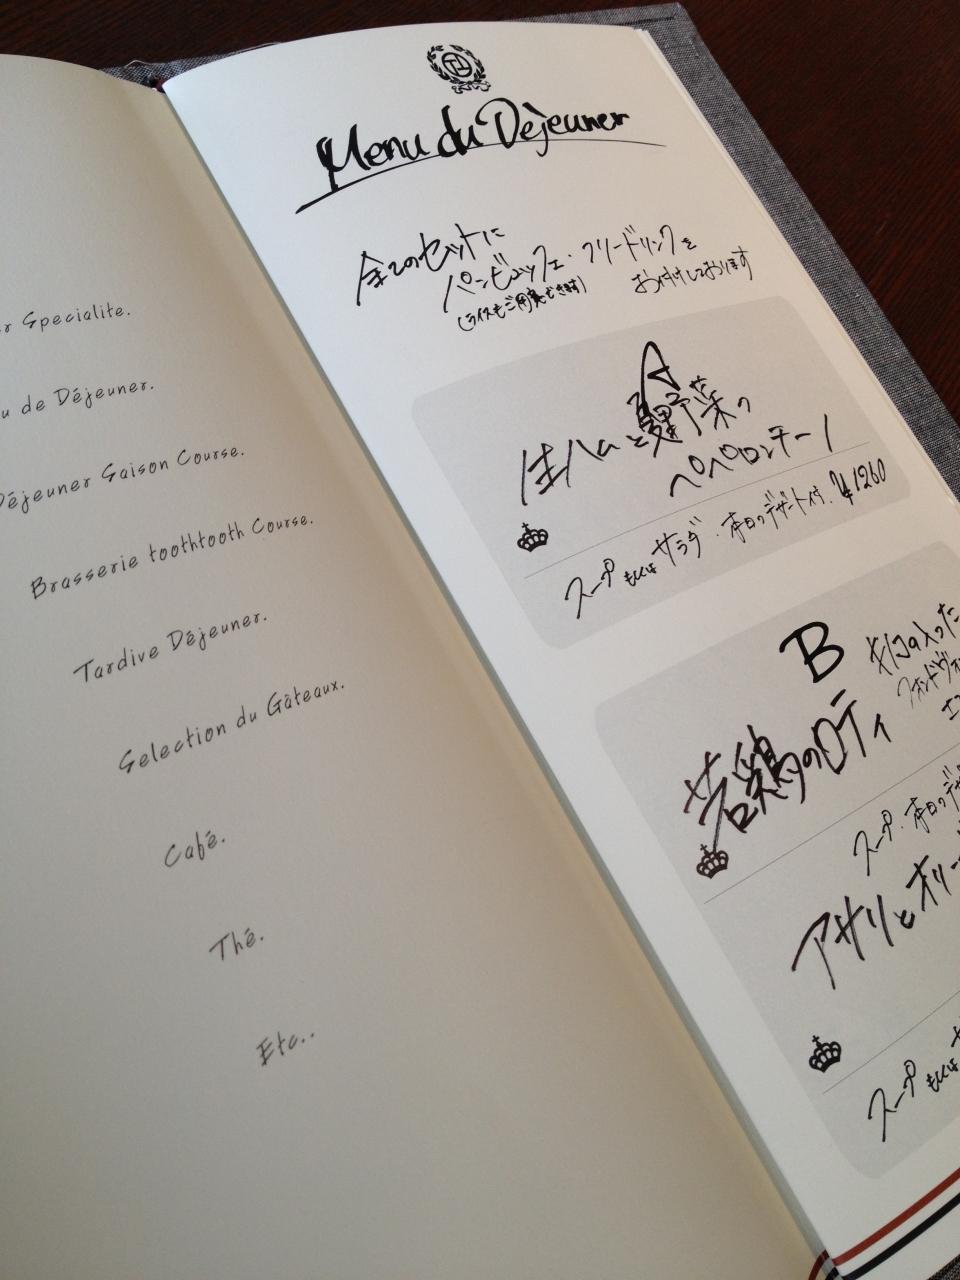 r Specialite.
u de Déjeuner.
Déjeuner Saison Course.
Brasserie toothtooth Course.
Tardive Déjeuner.
Selection du Gâteaux.
Café.
Thé.
Etc..
Menu du Dèjeuner
全てのセットに
パンビュッフェ・フリードリンクを
(ライスもご用意できます)
お付けしております
A
生ハムと夏野菜の
ペペロンチーノ
スープもしくはサラダ・本日のデザート付 ¥1260
B
若鶏のロティ
の入った
フォンドヴォ
スープ・本日のデザ
アサリとオリー
スープもしくは